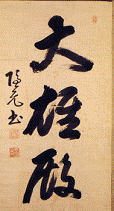 大雄殿
隱元書